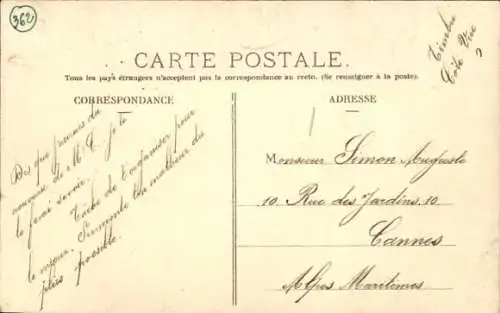 362
Timbre
Côté Vue
CARTE POSTALE.
Tous les pays étrangers n'acceptent pas la correspondance au recto. (Se renseigner à la poste).
CORRESPONDANCE
ADRESSE
Dès que j'aurais du
nouveau de M. C. je te
le ferai savoir.
Tache de t'organiser pour
le mieux. Surmonte ton malheur du
plus possible.
Monsieur Simon Auguste
10 Rue des Jardins, 10
Cannes
Alpes Maritimes